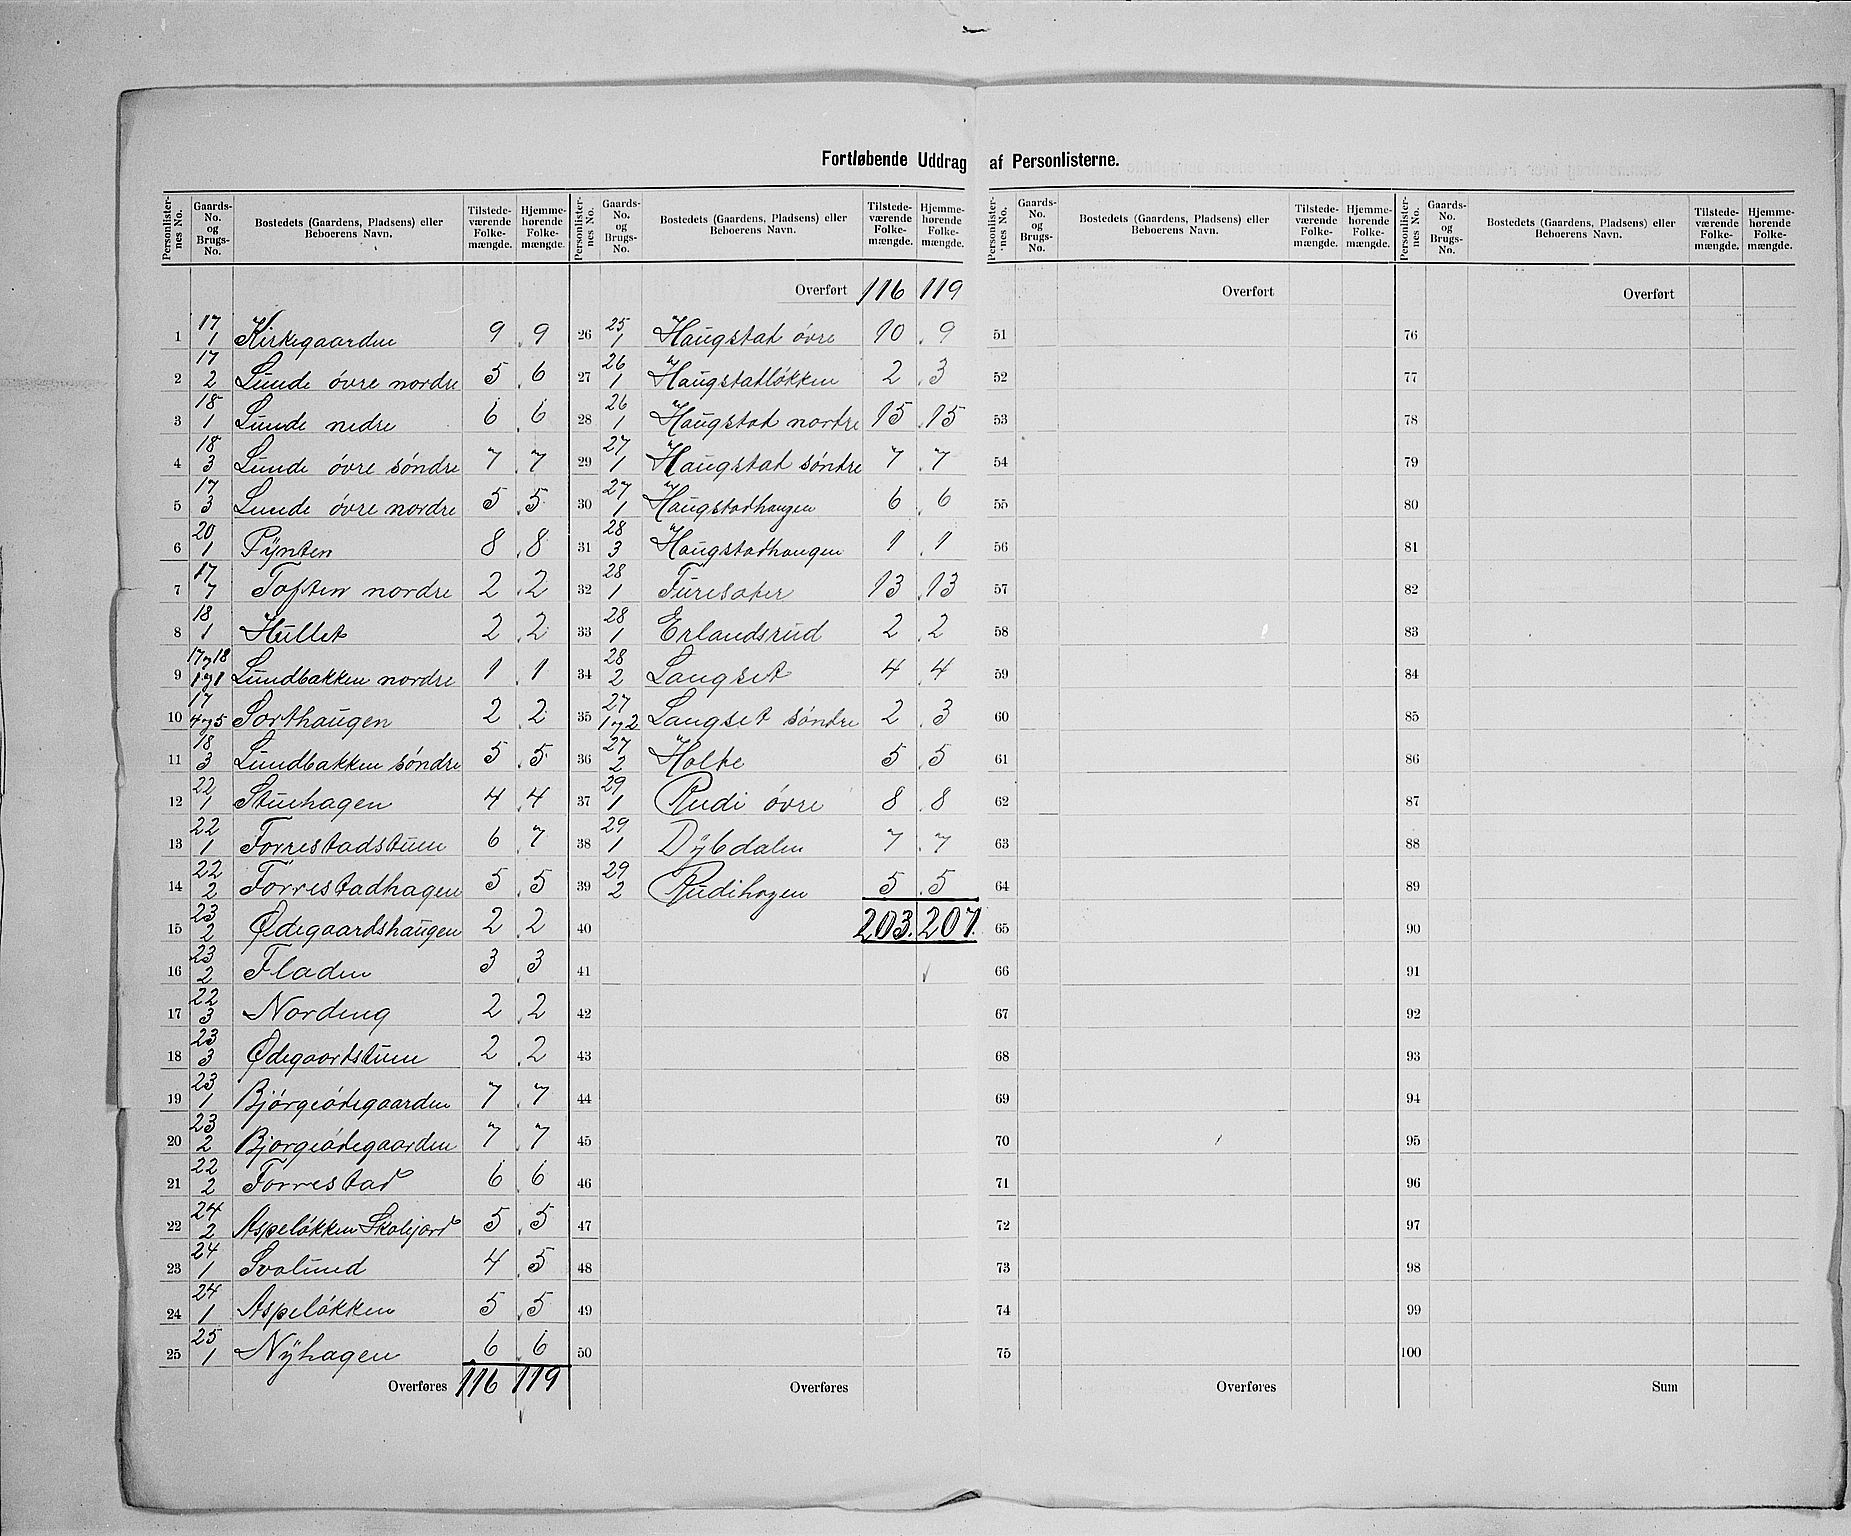 Fortløbende Uddrag af Personlisterne.
Personlister-nes No. | Gaards-No. og Brugs-No. | Bostedets (Gaardens, Pladsens) eller Beboerens Navn. | Tilstede-værende Folke-mængde. | Hjemme-hørende Folke-mængde.
1 | 17 1 | Kirkegaarden | 9 | 9
2 | 17 2 | Lunde øvre nordre | 5 | 6
3 | 18 1 | Lunde nedre | 6 | 6
4 | 18 3 | Lunde øvre søndre | 7 | 7
5 | 17 3 | Lunde øvre nordre | 5 | 5
6 | 20 1 | Pynten | 8 | 8
7 | 17 7 | Toften nordre | 2 | 2
8 | 18 1 | Hullet | 2 | 2
9 | 17 og 18 1 og 1 | Lundbakken nordre | 1 | 1
10 | 17 4 og 5 | Sorthaugen | 2 | 2
11 | 18 3 | Lundbakken søndre | 5 | 5
12 | 22 1 | Stuehagen | 4 | 4
13 | 22 1 | Forrestadstuen | 6 | 7
14 | 22 2 | Forrestadhagen | 5 | 5
15 | 23 2 | Ødegaardshaugen | 2 | 2
16 | 23 2 | Fladen | 3 | 3
17 | 22 3 | Nordeng | 2 | 2
18 | 23 3 | Ødegaardstuen | 2 | 2
19 | 23 1 | Bjørgeødegaarden | 7 | 7
20 | 23 2 | Bjørgeødegaarden | 7 | 7
21 | 22 2 | Forrestad | 6 | 6
22 | 24 2 | Aspeløkken Skolejord | 5 | 5
23 | 24 1 | Svalund | 4 | 5
24 | 24 1 | Aspeløkken | 5 | 5
25 | 25 1 | Nyhagen | 6 | 6
Overføres 116 119
Personlister-nes No. | Gaards-No. og Brugs-No. | Bostedets (Gaardens, Pladsens) eller Beboerens Navn. | Tilstede-værende Folke-mængde. | Hjemme-hørende Folke-mængde.
Overført 116 119
26 | 25 1 | Haugstad øvre | 10 | 9
27 | 26 1 | Haugstadløkken | 2 | 3
28 | 26 1 | Haugstad nordre | 15 | 15
29 | 27 1 | Haugstad søndre | 7 | 7
30 | 27 1 | Haugstadhaugen | 6 | 6
31 | 28 3 | Haugstadhaugen | 1 | 1
32 | 28 1 | Furesæter | 13 | 13
33 | 28 1 | Erlandsrud | 2 | 2
34 | 28 2 | Langset | 4 | 4
35 | 27 1 og 2 | Langset søndre | 2 | 3
36 | 27 2 | Holte | 5 | 5
37 | 29 1 | Rudi øvre | 8 | 8
38 | 29 1 | Dybdalen | 7 | 7
39 | 29 2 | Rudihagen | 5 | 5
40 203. 207.
41
42
43
44
45
46
47
48
49
50
Overføres
Personlister-nes No. | Gaards-No. og Brugs-No. | Bostedets (Gaardens, Pladsens) eller Beboerens Navn. | Tilstede-værende Folke-mængde. | Hjemme-hørende Folke-mængde.
Overført
51
52
53
54
55
56
57
58
59
60
61
62
63
64
65
66
67
68
69
70
71
72
73
74
75
Overføres
Personlister-nes No. | Gaards-No. og Brugs-No. | Bostedets (Gaardens, Pladsens) eller Beboerens Navn. | Tilstede-værende Folke-mængde. | Hjemme-hørende Folke-mængde.
Overført
76
77
78
79
80
81
82
83
84
85
86
87
88
89
90
91
92
93
94
95
96
97
98
99
100
Sum